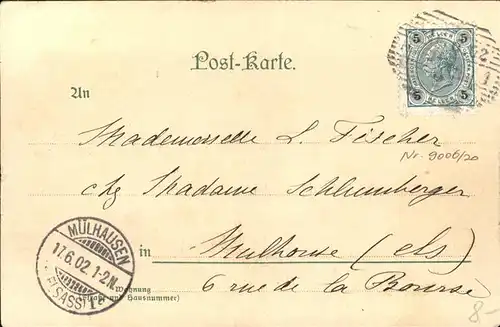 5 5
5 5
Post-Karte.
An
Mademoiselle L. Fischer
Nr. 9006/20
chz Madame Schlumberger
MÜLHAUSEN
17.6.02.1-2N.
(ELSASS) 1
in Mulhouse (els)
Wohnung
(Straße und Hausnummer)
6 rue de la Bourse
8-